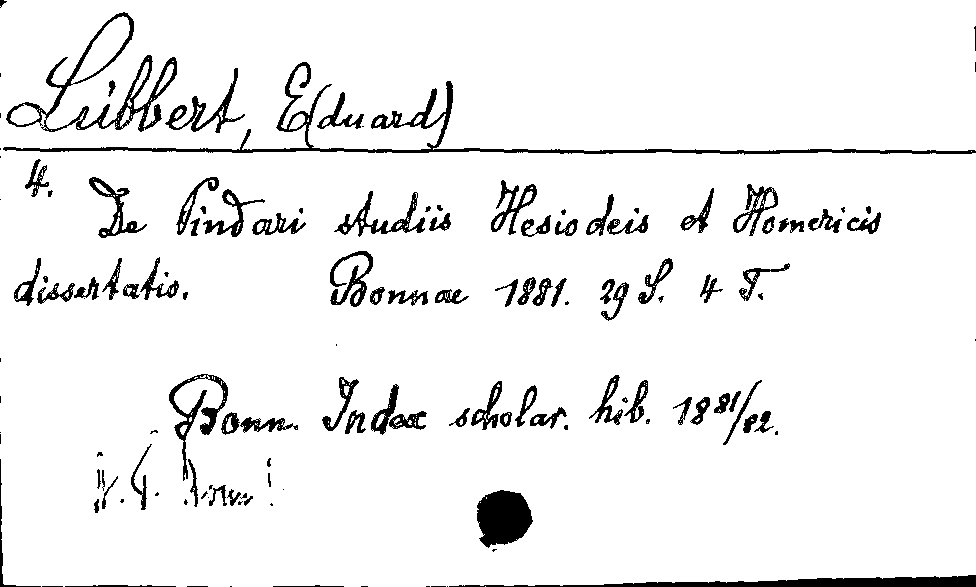 Lübbert, E(duard)
4.
De Pindari studiis Hesiodeis et Homericis
dissertatio. Bonnae 1881. 29 S. 4 T.
Bonn. Index scholar. hib. 1881/82.